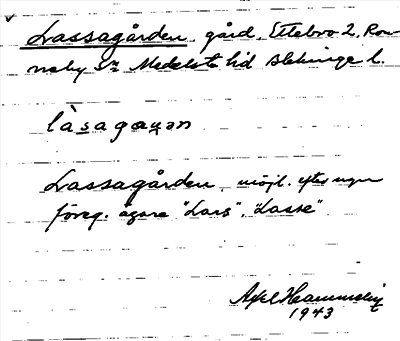 Lassagården, gård, Ettebro 2, Ron-
neby Sn Medelsta hd Blekinge l.
làsagaɥən
Lassagården, möjl. efter ngn
föreg. ägare "Lars", "Lasse"
Axel
1943